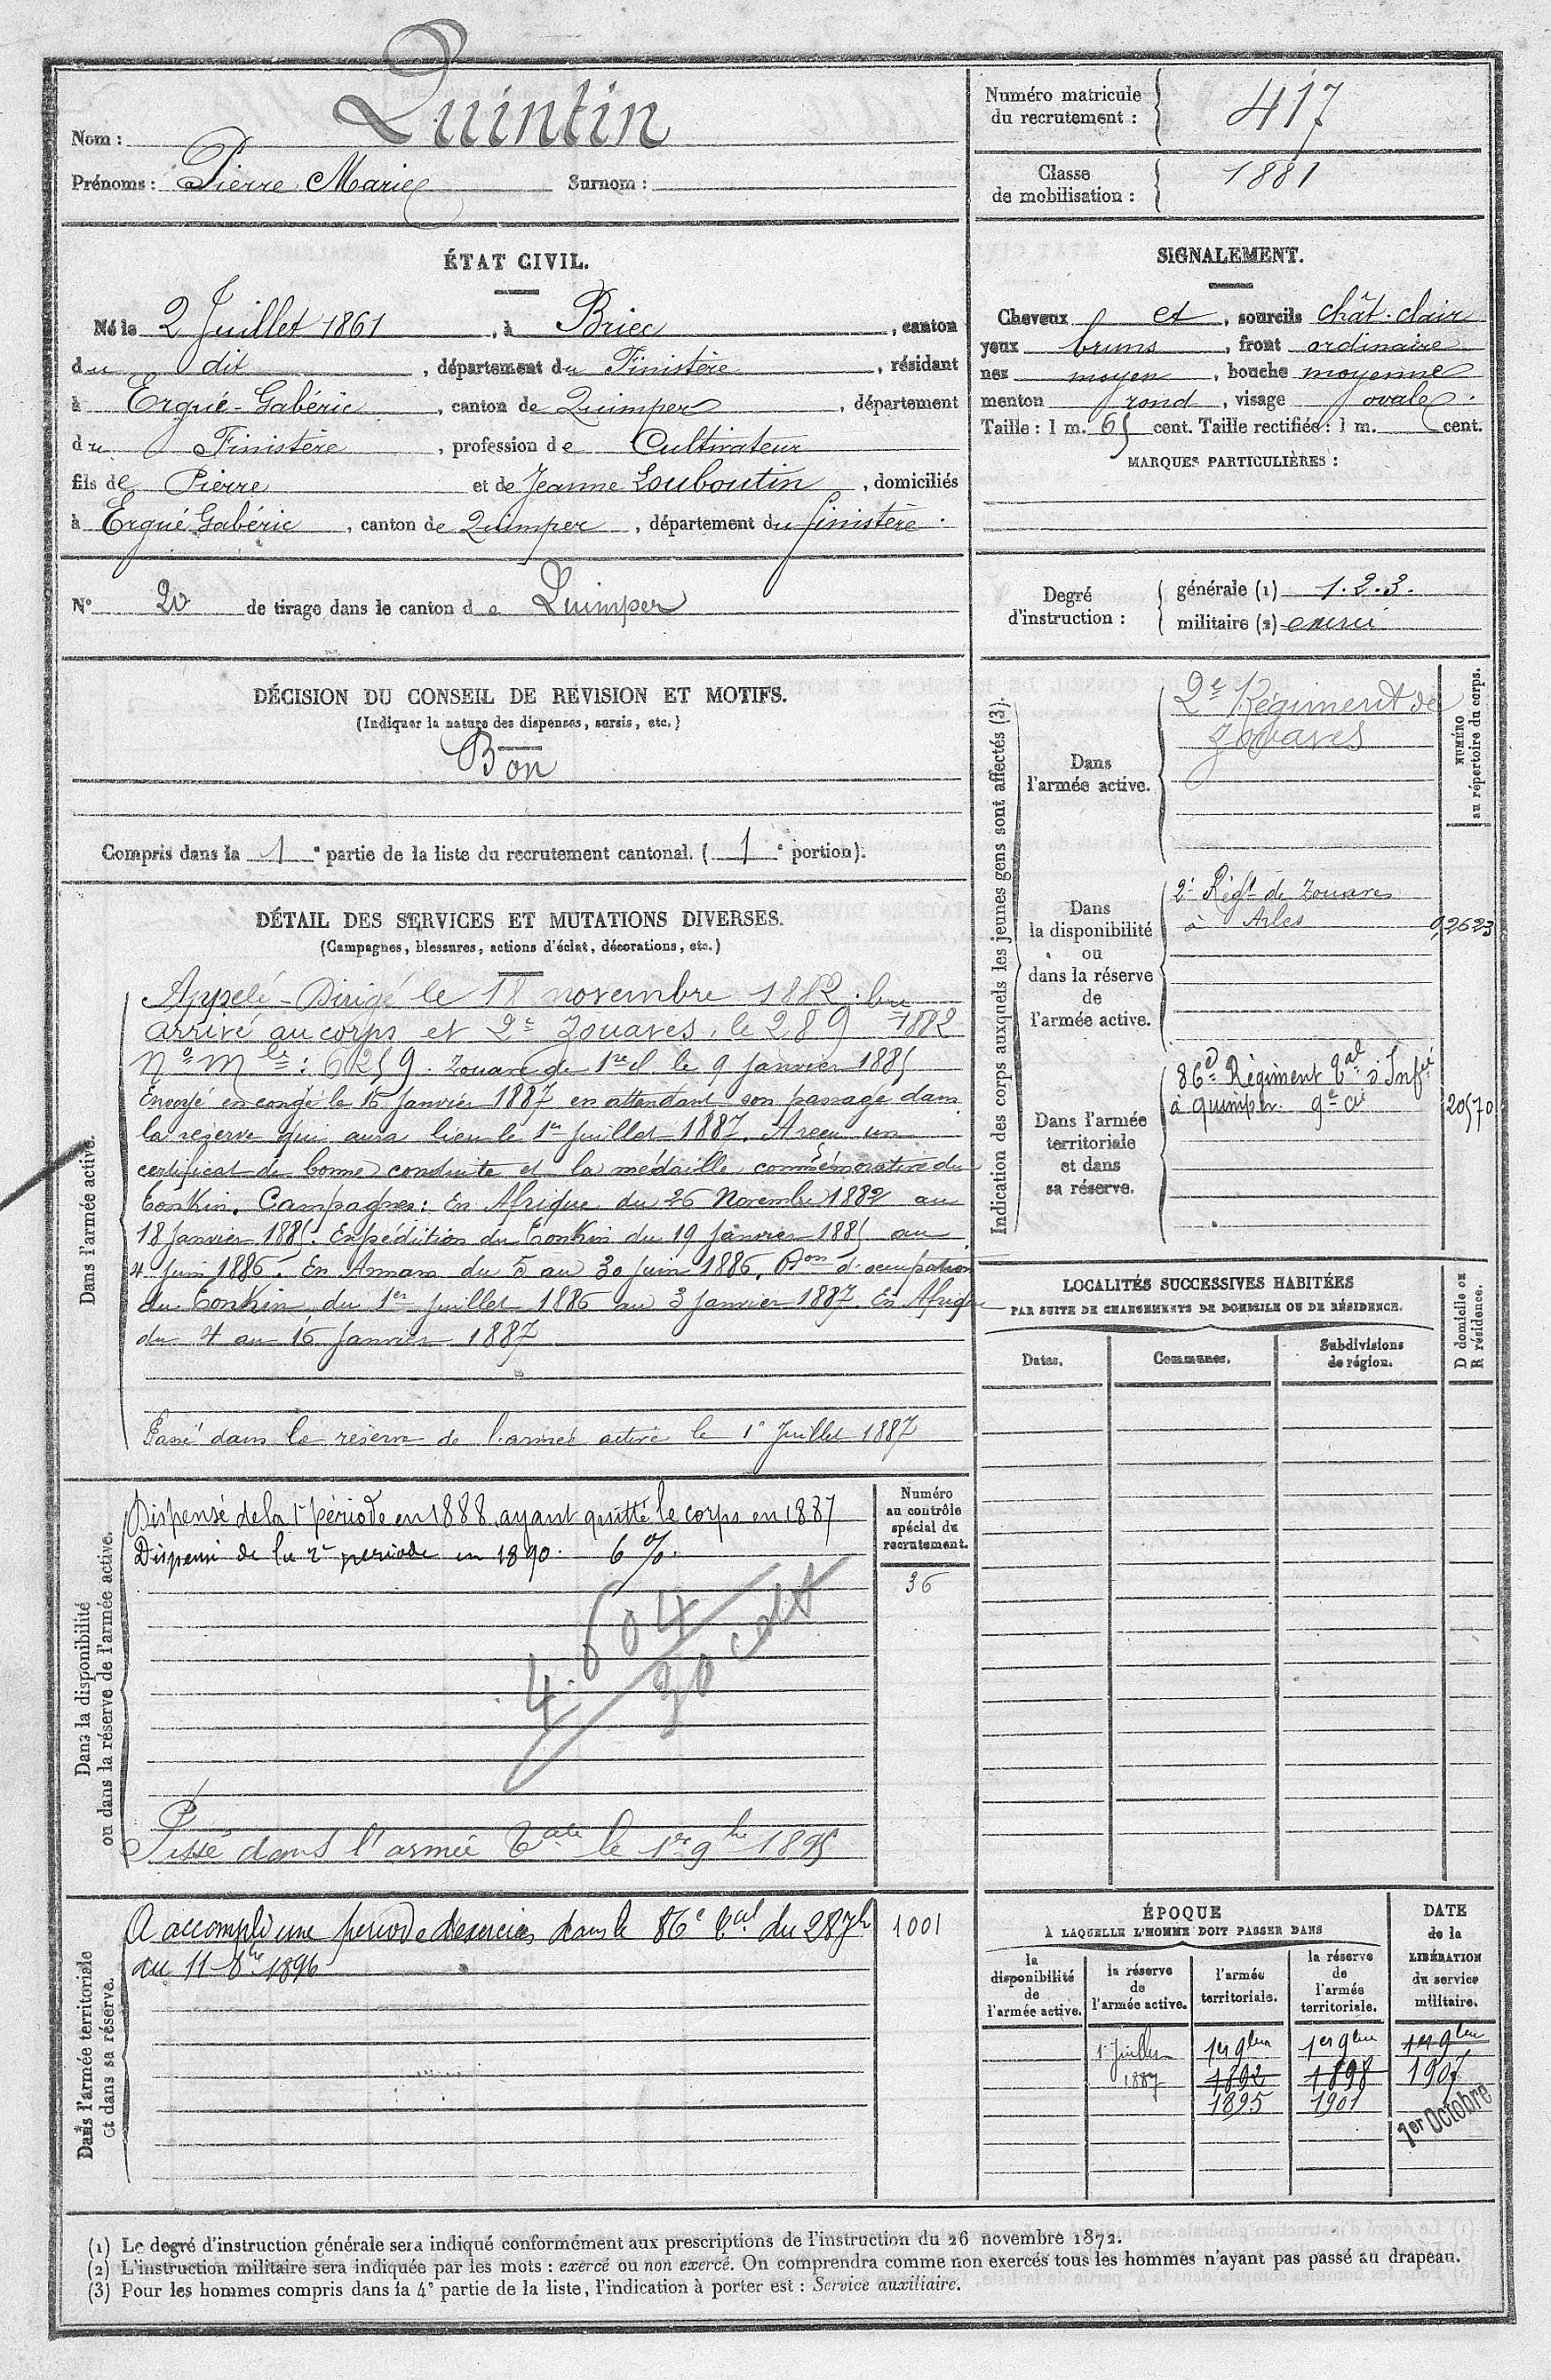 Nom : Quintin
Prénoms : Pierre Marie Surnom :
Numéro matricule du recrutement : 417
Classe de mobilisation : 1881
ÉTAT CIVIL.
Né le 2 Juillet 1861, à Briec, canton
du dit, département du Finistère, résidant
à Ergué-Gabéric, canton de Quimper, département
du Finistère, profession de Cultivateur
fils de Pierre et de Jeanne Louboutin, domiciliés
à Ergué Gabéric, canton de Quimper, département du Finistère.
N° 20 de tirage dans le canton de Quimper
SIGNALEMENT.
Cheveux et, sourcils chât. clair
yeux bruns, front ordinaire
nez moyen, bouche moyenne
menton rond, visage ovale.
Taille : 1 m. 65 cent. Taille rectifiée : 1 m. cent.
MARQUES PARTICULIÈRES :
Degré d'instruction :
générale (1) 1.2.3.
militaire (2) exercé
DÉCISION DU CONSEIL DE RÉVISION ET MOTIFS.
(Indiquer la nature des dispenses, sursis, etc.)
Bon
Compris dans la 1e partie de la liste du recrutement cantonal. (1e portion).
DÉTAIL DES SERVICES ET MUTATIONS DIVERSES.
(Campagnes, blessures, actions d'éclat, décorations, etc.)
Dans l'armée active.
Appelé - Dirigé le 18 novembre 1882.
arrivé au corps et 2e Zouaves, le 28 9 1882
N° Mle : 6259. Zouave de 1re cl le 9 Janvier 1885
Envoyé en congé le 16 Janvier 1887 en attendant son passage dans
la réserve qui aura lieu le 1er Juillet 1887. A reçu un
certificat de bonne conduite et la médaille commémorative du
Tonkin. Campagnes : En Afrique du 26 Novembre 1882 au
18 Janvier 1885. Expédition du Tonkin du 19 Janvier 1885 au
4 Juin 1886. En Annam du 5 au 30 Juin 1886. d'occupation
du Tonkin du 1er Juillet 1886 au 3 Janvier 1887. En Afrique
du 4 au 16 Janvier 1887
Passé dans la réserve de l'armée active le 1er Juillet 1887
Dans la disponibilité ou dans la réserve de l'armée active.
Dispensé de la 1e période en 1888 ayant quitté le corps en 1887
Dispensé de la 2e periode en 1890. 6 %.
Numéro au contrôle spécial du recrutement.
36
4. 604
30
Passé dans l'armée tale le 1er 9bre 1895
Dans l'armée territoriale et dans sa réserve.
A accompli une période d'exercices dans le 86e tal du 28 7b
au 11 - 8bre 1896
1001
Indication des corps auxquels les jeunes gens sont affectés (3).
NUMÉRO au répertoire du corps.
Dans l'armée active.
2e Régiment de
Zouaves
Dans la disponibilité ou dans la réserve de l'armée active.
2e Régt de Zouaves
à Arles
92623
Dans l'armée territoriale et dans sa réserve.
86e Régiment tal d'Infie
à Quimper. 9e Cie
20570
LOCALITÉS SUCCESSIVES HABITÉES
PAR SUITE DE CHANGEMENTS DE DOMICILE OU DE RÉSIDENCE.
Dates. Communes. Subdivisions de région. D domicile ou R résidence.
ÉPOQUE
À LAQUELLE L'HOMME DOIT PASSER DANS
la disponibilité de l'armée active.
la réserve de l'armée active.
l'armée territoriale.
la réserve de l'armée territoriale.
DATE de la LIBÉRATION du service militaire.
1er Juillet 1er 9bre 1er 9bre 1er 9bre
1887 1892 1898 1907
1895 1901
1er Octobre
(1) Le degré d'instruction générale sera indiqué conformément aux prescriptions de l'instruction du 26 novembre 1872.
(2) L'instruction militaire sera indiquée par les mots : exercé ou non exercé. On comprendra comme non exercés tous les hommes n'ayant pas passé au drapeau.
(3) Pour les hommes compris dans la 4e partie de la liste, l'indication à porter est : Service auxiliaire.